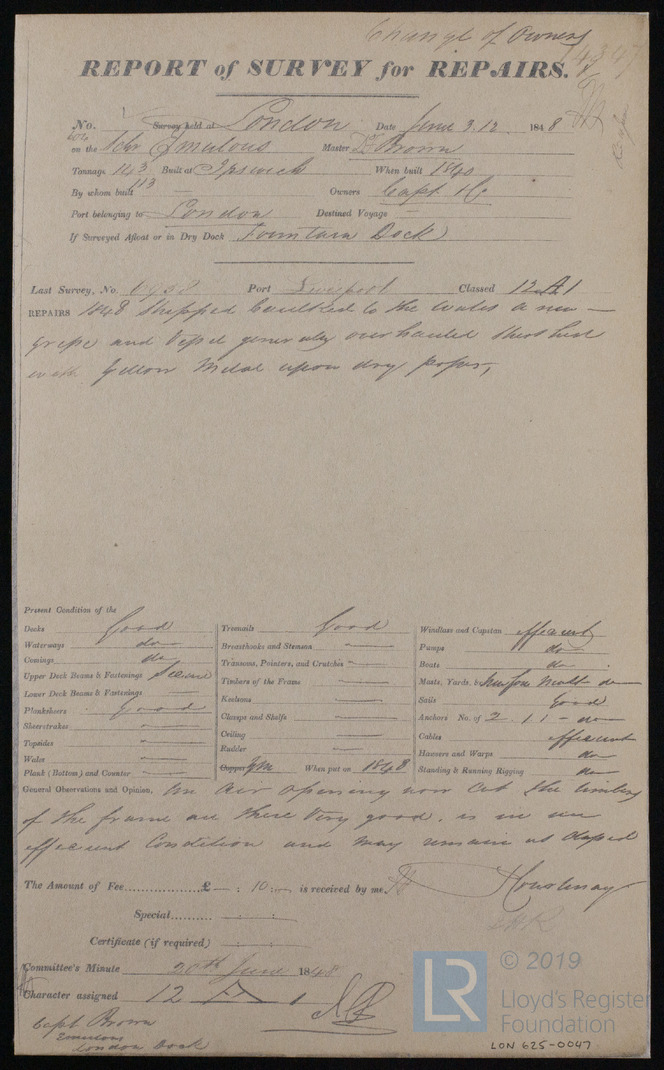 Change of Owners
REPORT of SURVEY for REPAIRS.
No. Survey held at London Date June 3. 12. 1848
on the Schr Emulous Master Brown
Tonnage 143 Built at Ipswich When built 1840
113
By whom built — Owners Capt &c
Port belonging to London Destined Voyage —
If Surveyed Afloat or in Dry Dock Fountain Dock
Last Survey, No. Port Liverpool Classed 12 A 1
REPAIRS 1848 Stripped Caulked to the Wales a new
gripe and Vessel generally overhauled
with Yellow Metal upon dry paper,
Present Condition of the
Decks Good
Waterways do
Comings do
Upper Deck Beams & Fastenings Secure
Lower Deck Beams & Fastenings —
Planksheers Good
Sheerstrakes —
Topsides —
Wales —
Plank (Bottom) and Counter —
Treenails Good
Breasthooks and Stemson —
Transoms, Pointers, and Crutches —
Timbers of the Frame —
Keelsons —
Clamps and Shelfs —
Ceiling —
Rudder —
Copper YM When put on 1848
Windlass and Capstan efficient
Pumps do
Boats do
Masts, Yards, &
Sails Good
Anchors No. of 2 . 1 1
Cables efficient
Hawsers and Warps do
Standing & Running Rigging do
General Observations and Opinion, An air opening now cut the timbers
of the frame are there Very good. is in an
efficient Condition and may remain as Classed
The Amount of Fee............... £ — : 10 : — is received by me,
Special.......... — : — : —
Certificate (if required) — : — : —
Committee's Minute 20th June 1848
Character assigned 12 A 1
Capt Brown
Emulous
London Dock
LR
© 2019
Lloyd's Register
Foundation
LON 625-0047